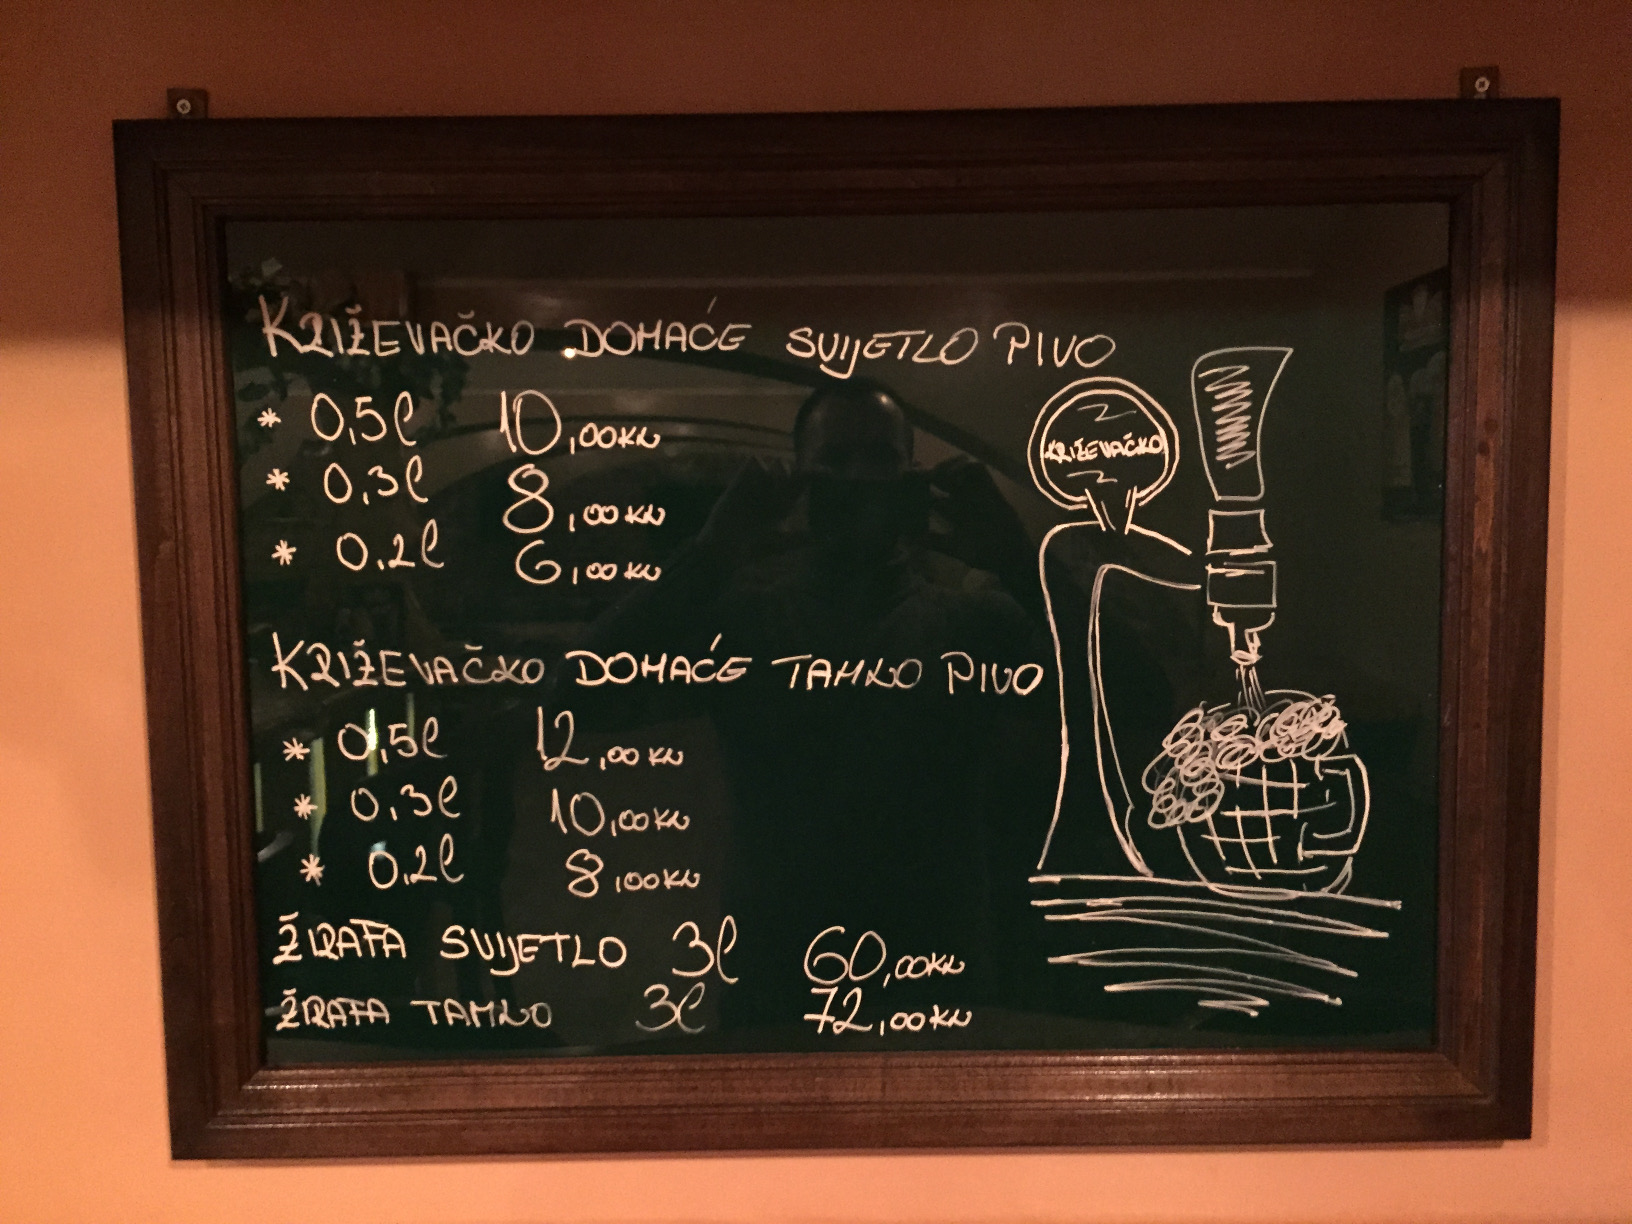 KRIŽEVAČKO DOMAĆE SVIJETLO PIVO
* 0,5l 10,00KN
* 0,3l 8,00KN
* 0,2l 6,00KN
KRIŽEVAČKO
KRIŽEVAČKO DOMAĆE TAMNO PIVO
* 0,5l 12,00KN
* 0,3l 10,00KN
* 0,2l 8,00KN
ŽIRAFA SVIJETLO 3l 60,00KN
ŽIRAFA TAMNO 3l 72,00KN